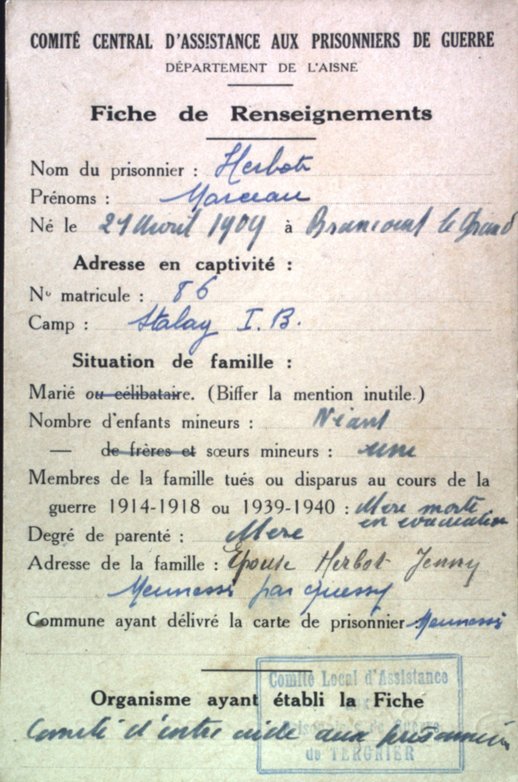 COMITÉ CENTRAL D'ASSISTANCE AUX PRISONNIERS DE GUERRE
DÉPARTEMENT DE L'AISNE
Fiche de Renseignements
Nom du prisonnier : Herbot
Prénoms : Marceau
Né le 21 Avril 1909 à Brancourt le Grand
Adresse en captivité :
No matricule : 86
Camp : Stalag I.B.
Situation de famille :
Marié ou célibataire. (Biffer la mention inutile.)
Nombre d'enfants mineurs : Néant
— de frères et sœurs mineurs : une
Membres de la famille tués ou disparus au cours de la
guerre 1914-1918 ou 1939-1940 : Mère morte
en évacuation
Degré de parenté : Mère
Adresse de la famille : Epouse Herbot Jenny
Mennessis par Quessy
Commune ayant délivré la carte de prisonnier Mennessis
Comité Local d'Assistance
Prisonniers de Guerre
de TERGNIER
Organisme ayant établi la Fiche
Comité d'entr'aide aux prisonniers